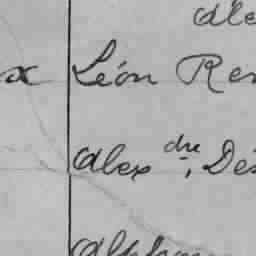 Ale
x Léon Ren
Alexdre, Dés
Alphon